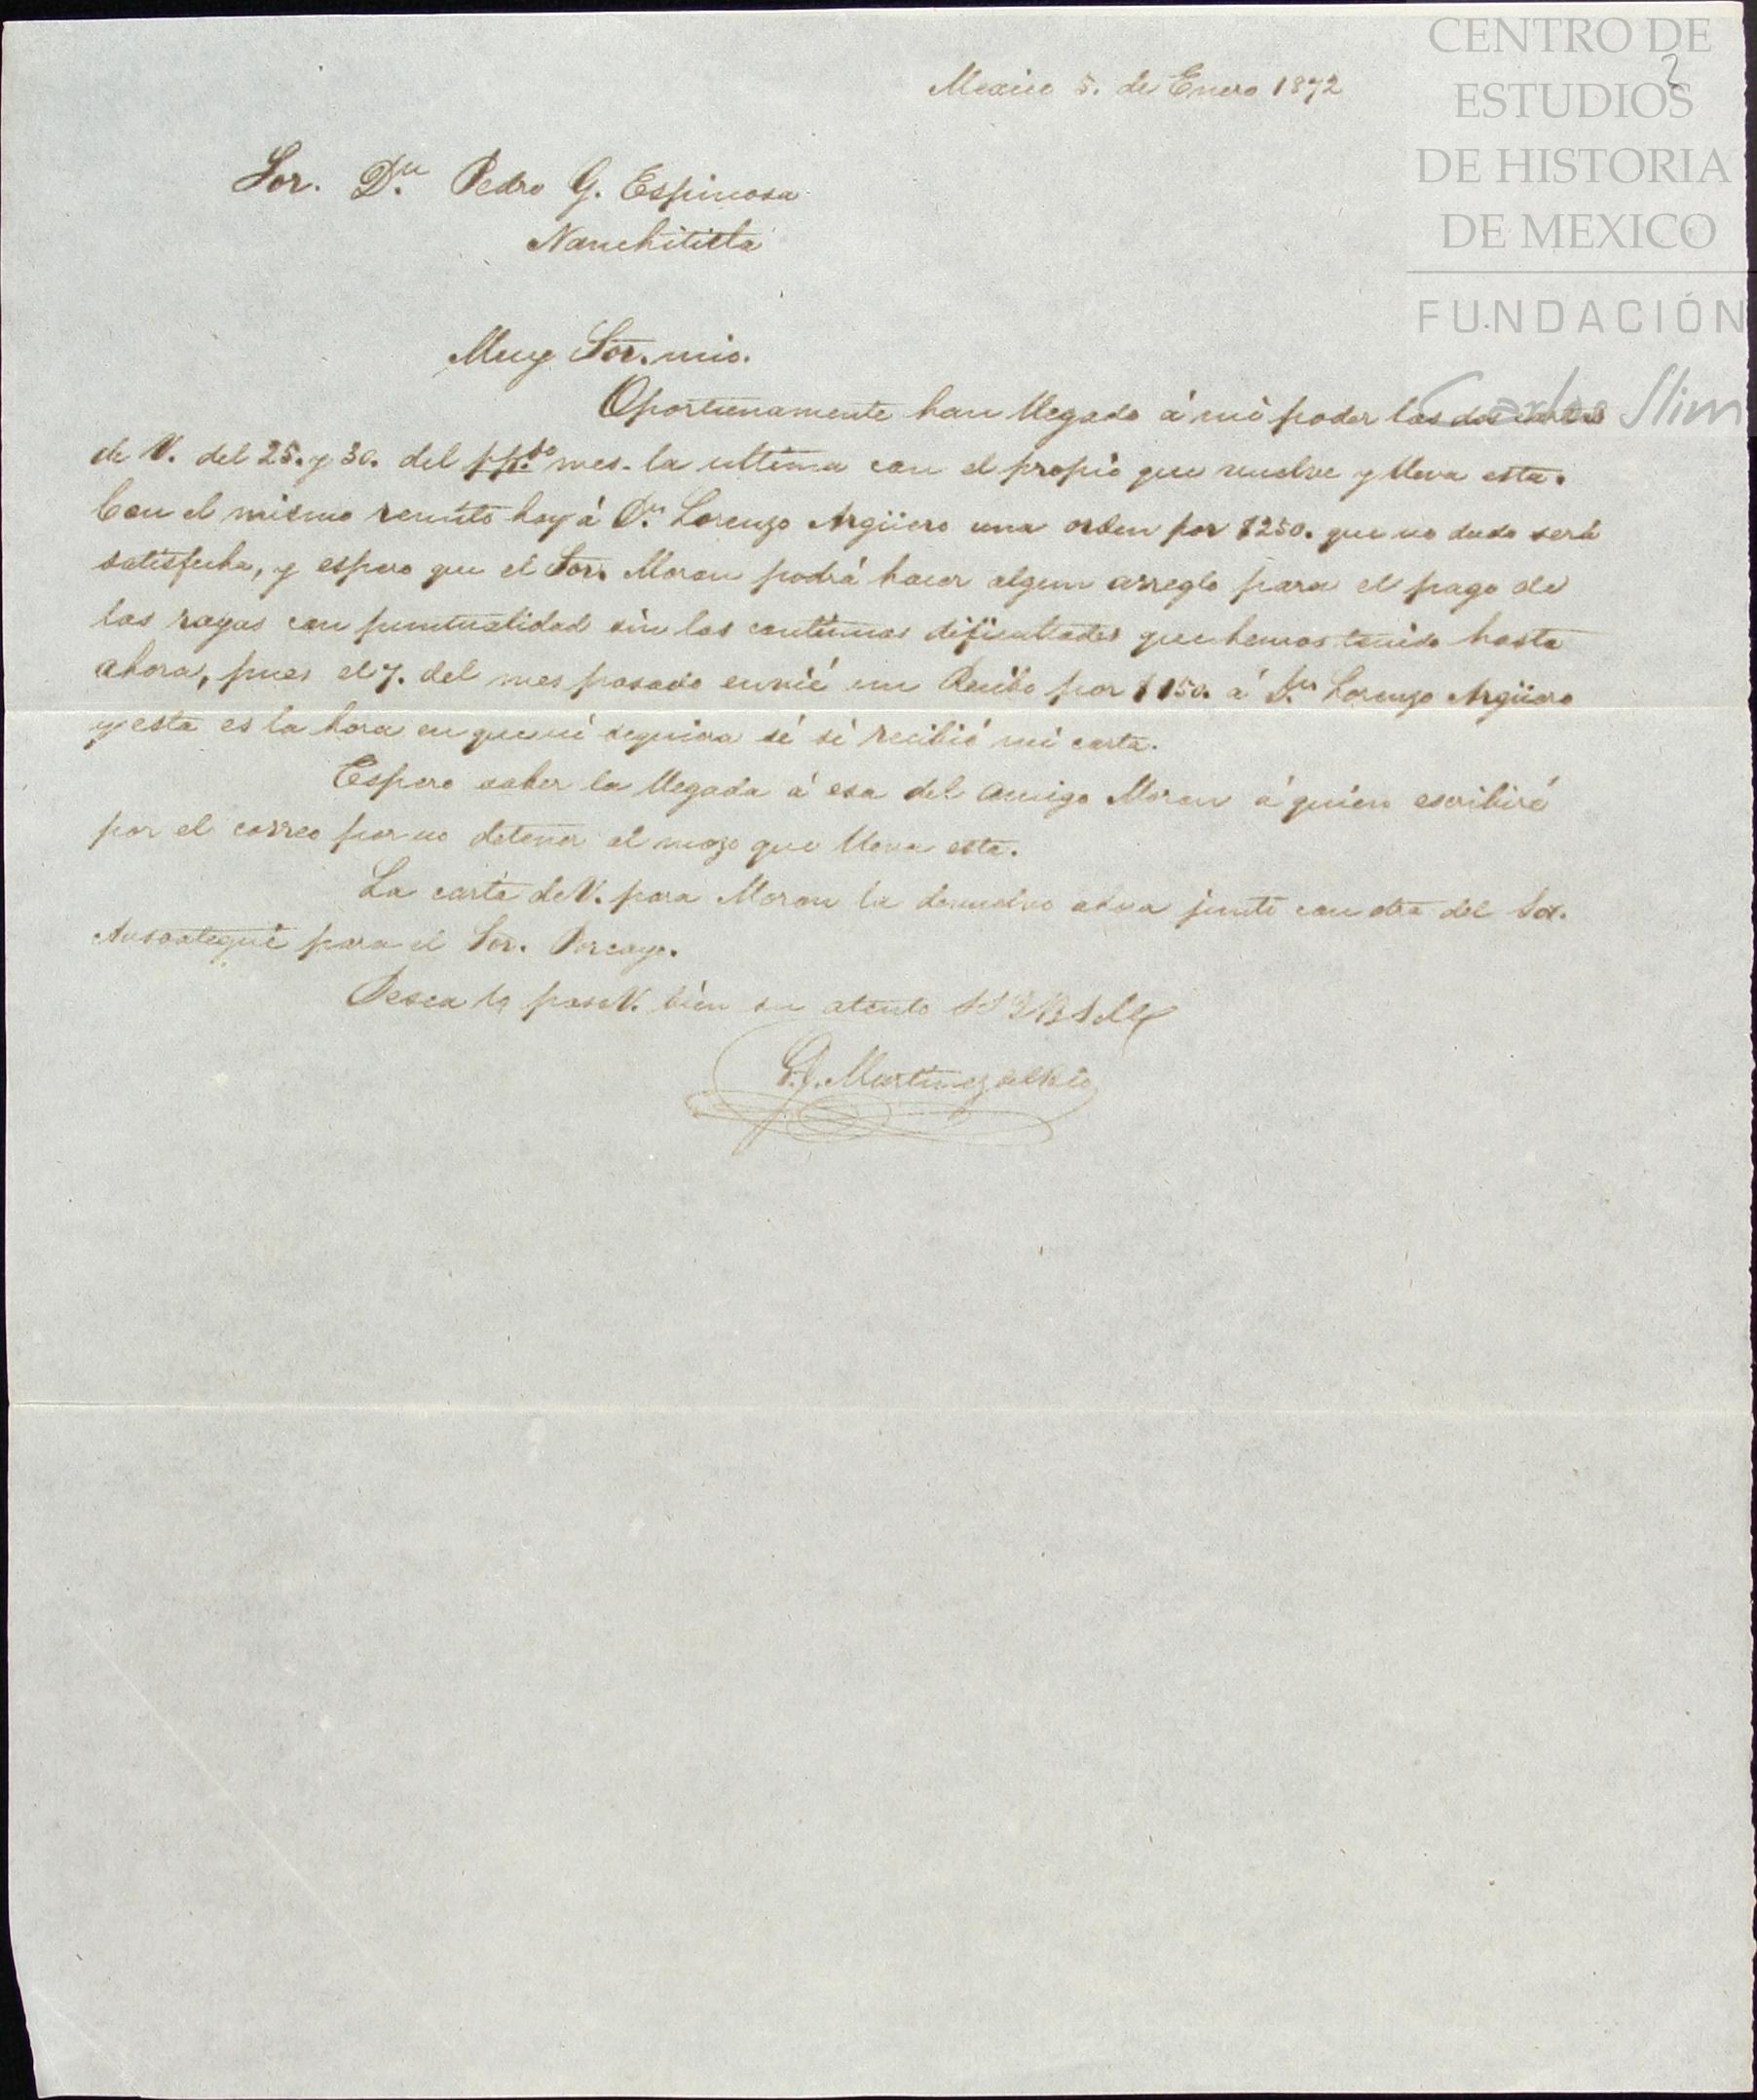 CENTRO DE
ESTUDIOS
DE HISTORIA
DE MEXICO
FUNDACIÓN
Carlos Slim
2
Mexico 5. de Enero 1872
Sor. Dn. Pedro G. Espinosa
Nanchititla
Muy Sor. mio.
Oportunamente han llegado á mi poder las dos cartas
de V. del 25. y 30. del ppdo. mes. la ultima con el propio que vuelve y lleva esta.
Con el mismo remito hoy á Dn. Lorenzo Argüero una orden por $250. que no dudo será
satisfecha, y espero que el Sor. Moran podrá hacer algun arreglo para el pago de
las rayas con puntualidad sin las continuas dificultades que hemos tenido hasta
ahora, pues el 7. del mes pasado envié un Recibo por $150. á Dn. Lorenzo Argüero
y esta es la hora en que ni siquiera sé si recibió mi carta.
Espero saber la llegada á esa del amigo Moran á quien escribiré
por el correo por no detener al mozo que lleva esta.
La carta de V. para Moran la devuelvo ahora junto con otra del Sor.
Ansoategui para el Sor. Porcayo.
Desea lo pase V. bien su atento
Martinez del Rio